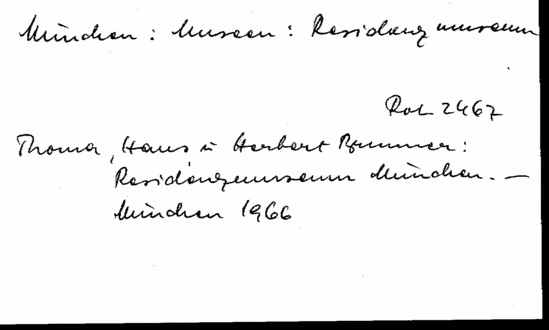 München: Museen: Residenzmuseum
Rot 2467
Thoma, Hans u Herbert Brunner:
Residenzmuseum München. —
München 1966